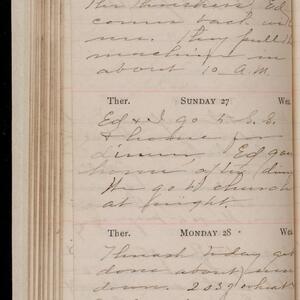 the thrashers, Ed
comes back with
me. they pull the
machine in
about 10 A.M.
Ther. SUNDAY 27 Wea.
Ed & I go to S.S.
& home for
dinner, Ed goes
home after dinner
We go to church
at night.
Ther. MONDAY 28 Wea.
Thrash today get
done about
down. 2039 wheat